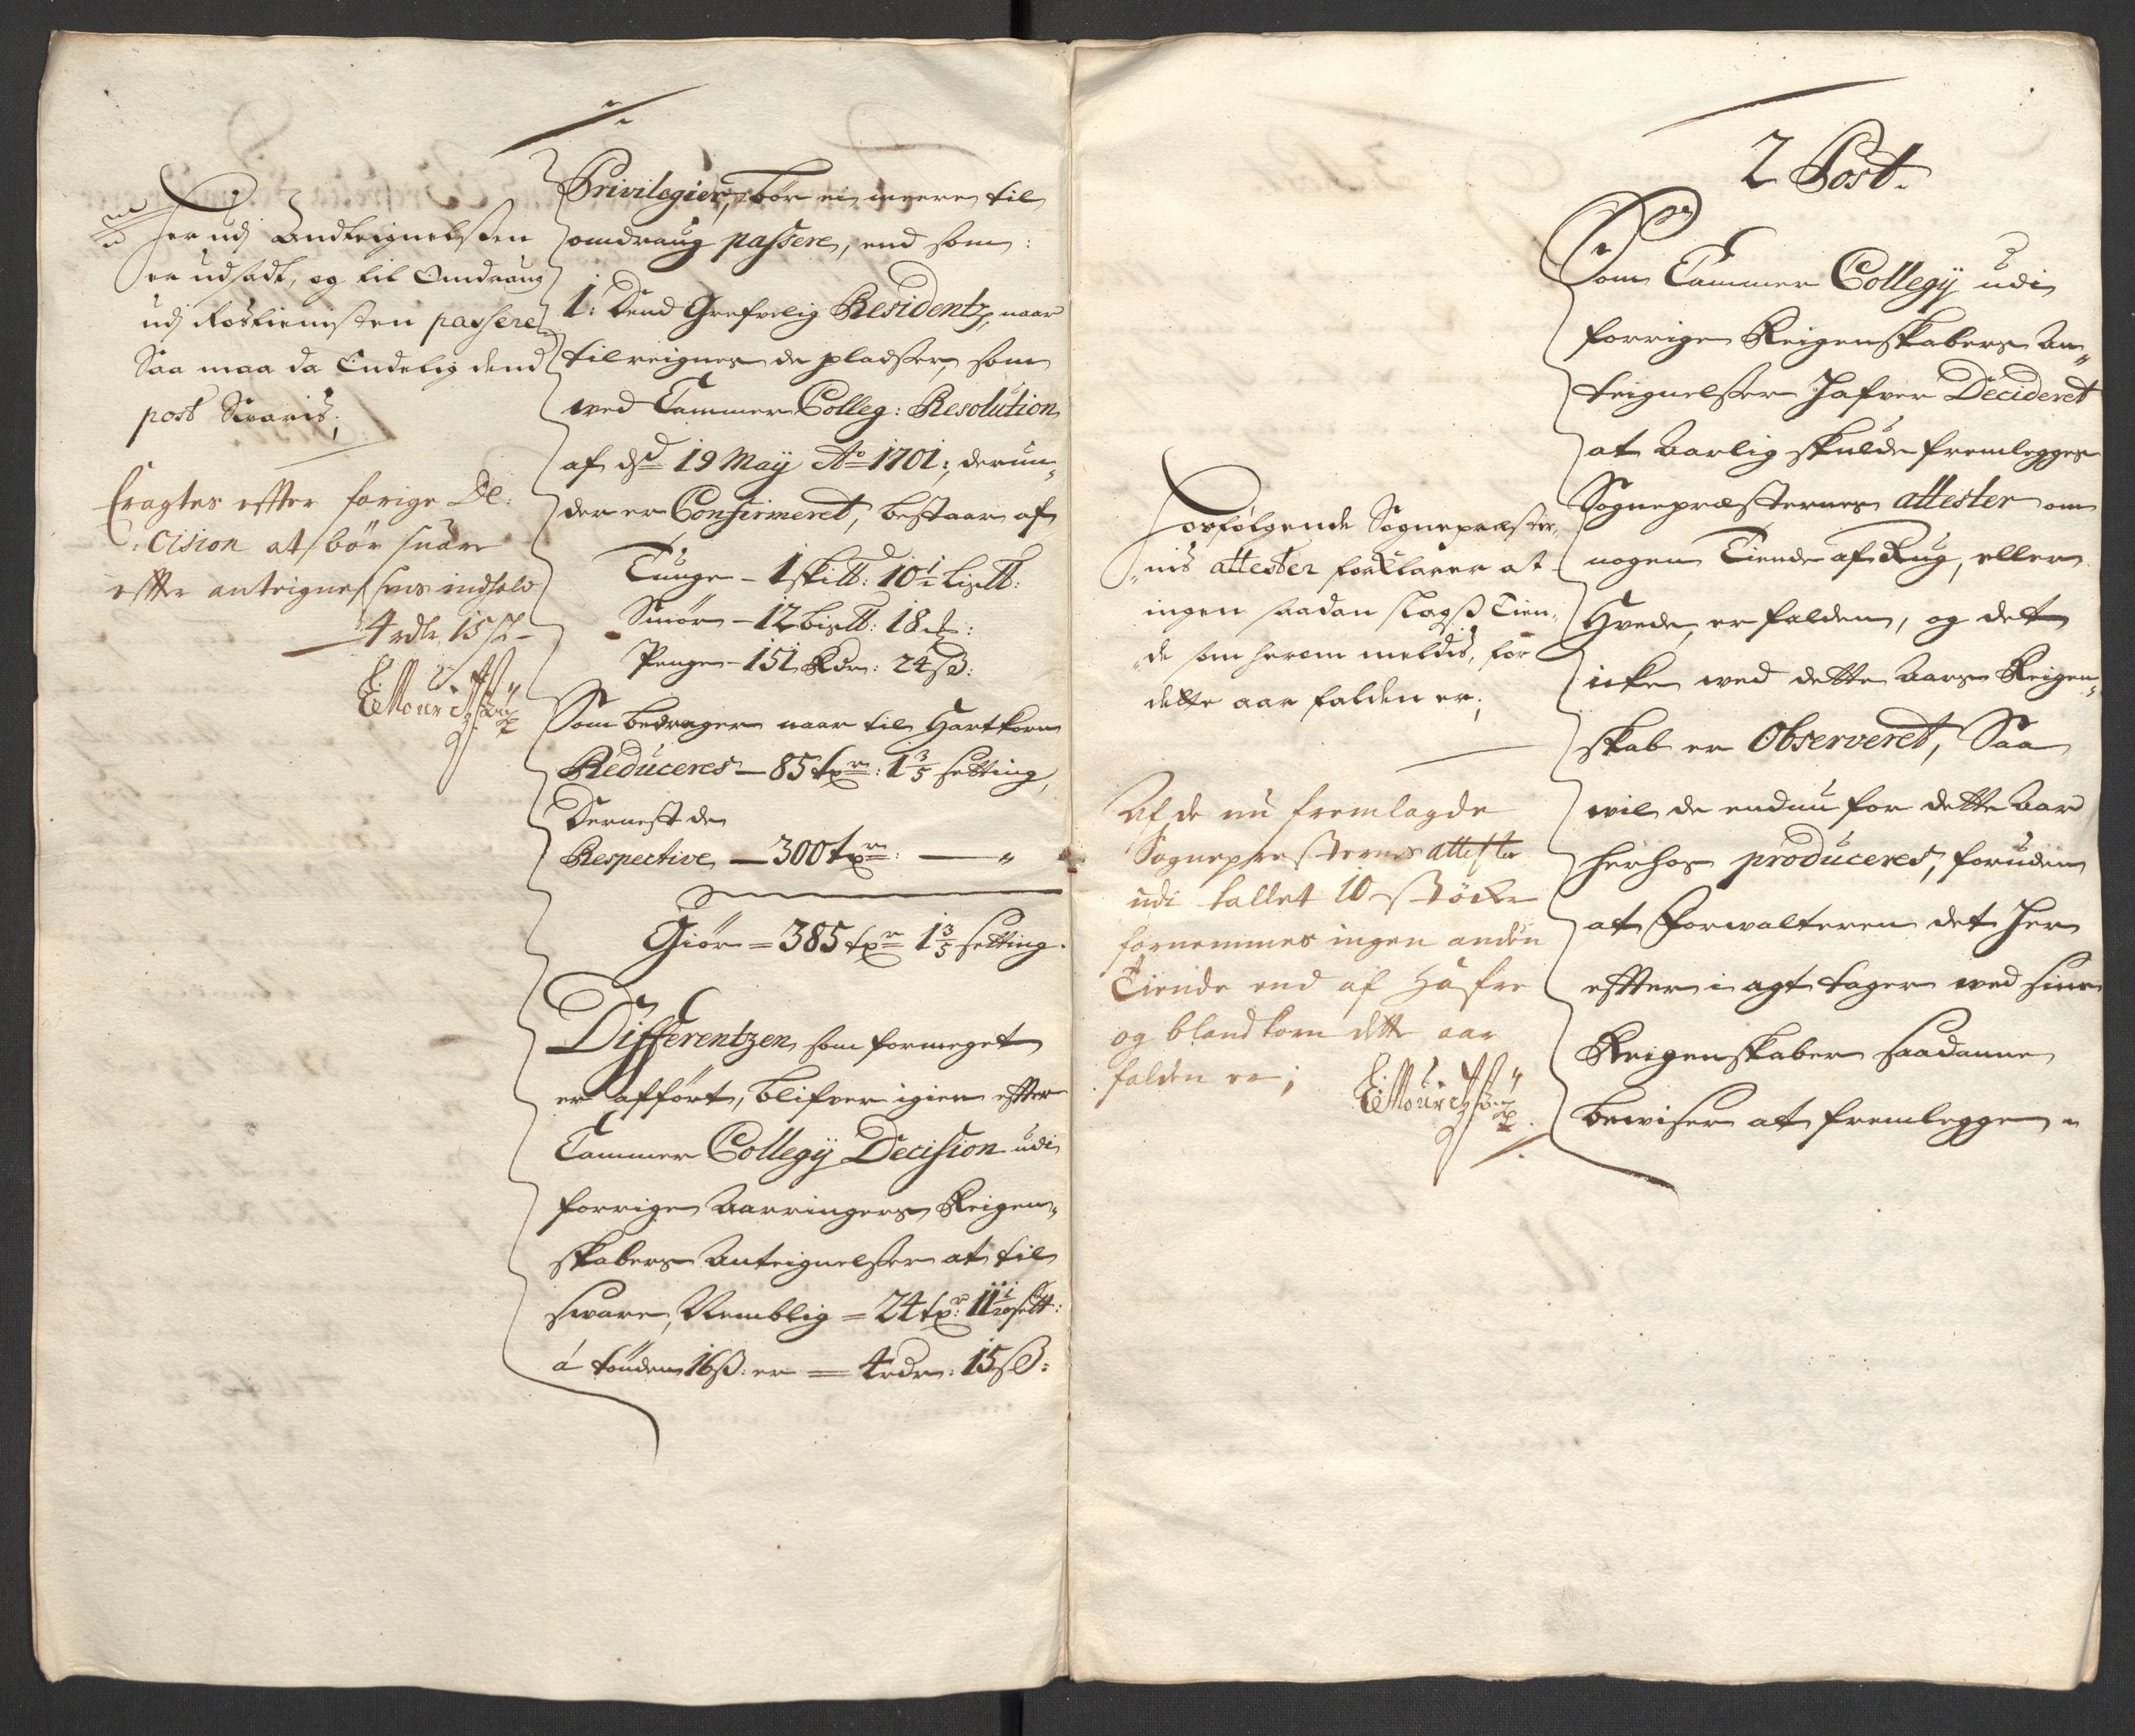 Her udj Andteignelsen
er udsadt, og til Omdraug
udj Rostienisten passere
Saa maa da Endelig dend
post Svaris;
Eragtes efter forige De:
:cision at bör suare
efter anteignelsens indhold
4 rdr. 15 s –
Privilegier, bör ei meere til
omdraug passere, end som:
1: Dend Grefvelig Residentz, naar
tilreignes de pladser, som
wed Cammer Colleg: Resolution
af dd 19 Maÿ Ao 1701:, derun„
der er Confirmeret, bestaar af
Tunge – 1 skilb: 10½ Lislb:
Smör – 12 bislb: 18 :
Penge – 151 Rdr: 24 ß:
Som bedrager naar til Hartkorn
Reduceres – 85 tdr: 1 3/5 setting,
Dernest de
Respective – 300 tdr: – „
Giör = 385 tdr 1 3/5 setting.
Differentzen som formeget
er afført, blifver igien efter
Cammer Collegÿ Decision udi
forrige Aaringers Reigen„
skabers Anteignelser at til
svare, Nemblig = 24 tdr: 11 1/20 sett:
á tönden 16 ß: er = 4 rdr: 15 ß:
2 Post.
Som Cammer Collegÿ udi
forrige Reigenskabers An„
teignelser hafver Decideret
at Aarlig skulde fremlegges
Sognepræsternes attester om
nogen Tiende af Rug, eller
Hvede, er falden, og det
icke wed dette Aars Reigen„
skab er Observeret, Saa
wil de endnu for dette Aar
herhos produceres, foruden
at Forwalteren det her
efter i agt tager wed sine
Reigenskaber saadanne
bewiser at fremlegge
Hosfølgende Sognepræster„
„nis attester forklarer at
ingen saadan slags Tien„
„de som herom meldis, for
dette aar falden er;
Af de nu fremlagde
Sognepresternes attester
udi tallet 10 støcker
fornemmes ingen anden
Tiende end af Hafre
og bland korn dette aar
falden er;